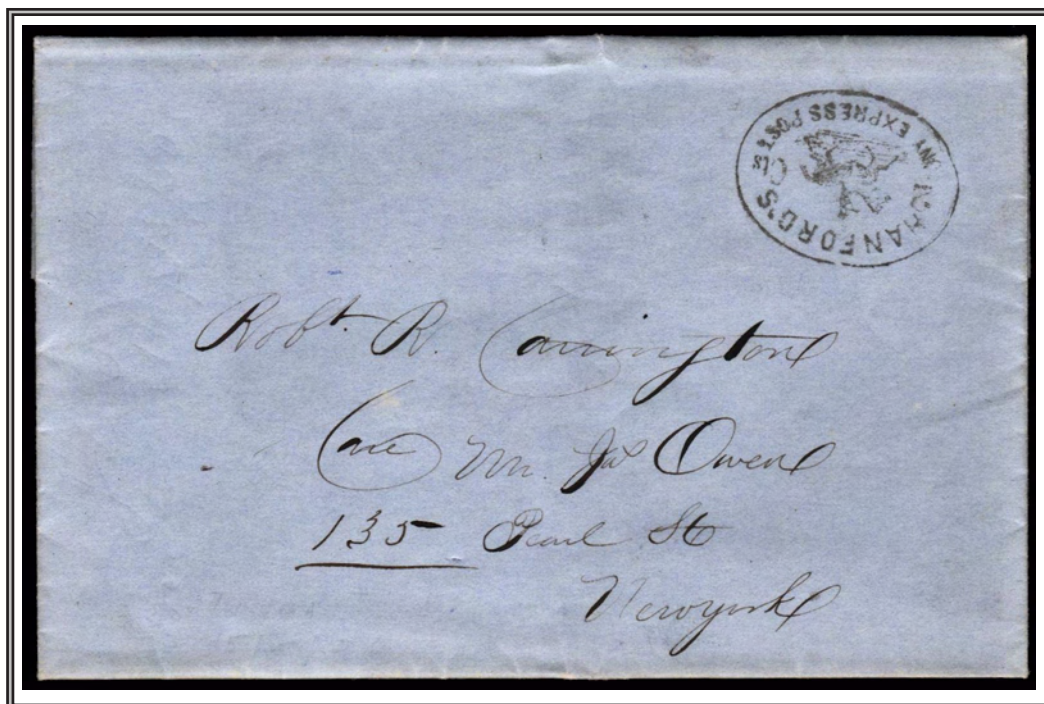 HANFORD'S
EXPRESS POST
Robt. R. Carrington
Care Mr. Jas Owen
135 Pearl St
Newyork